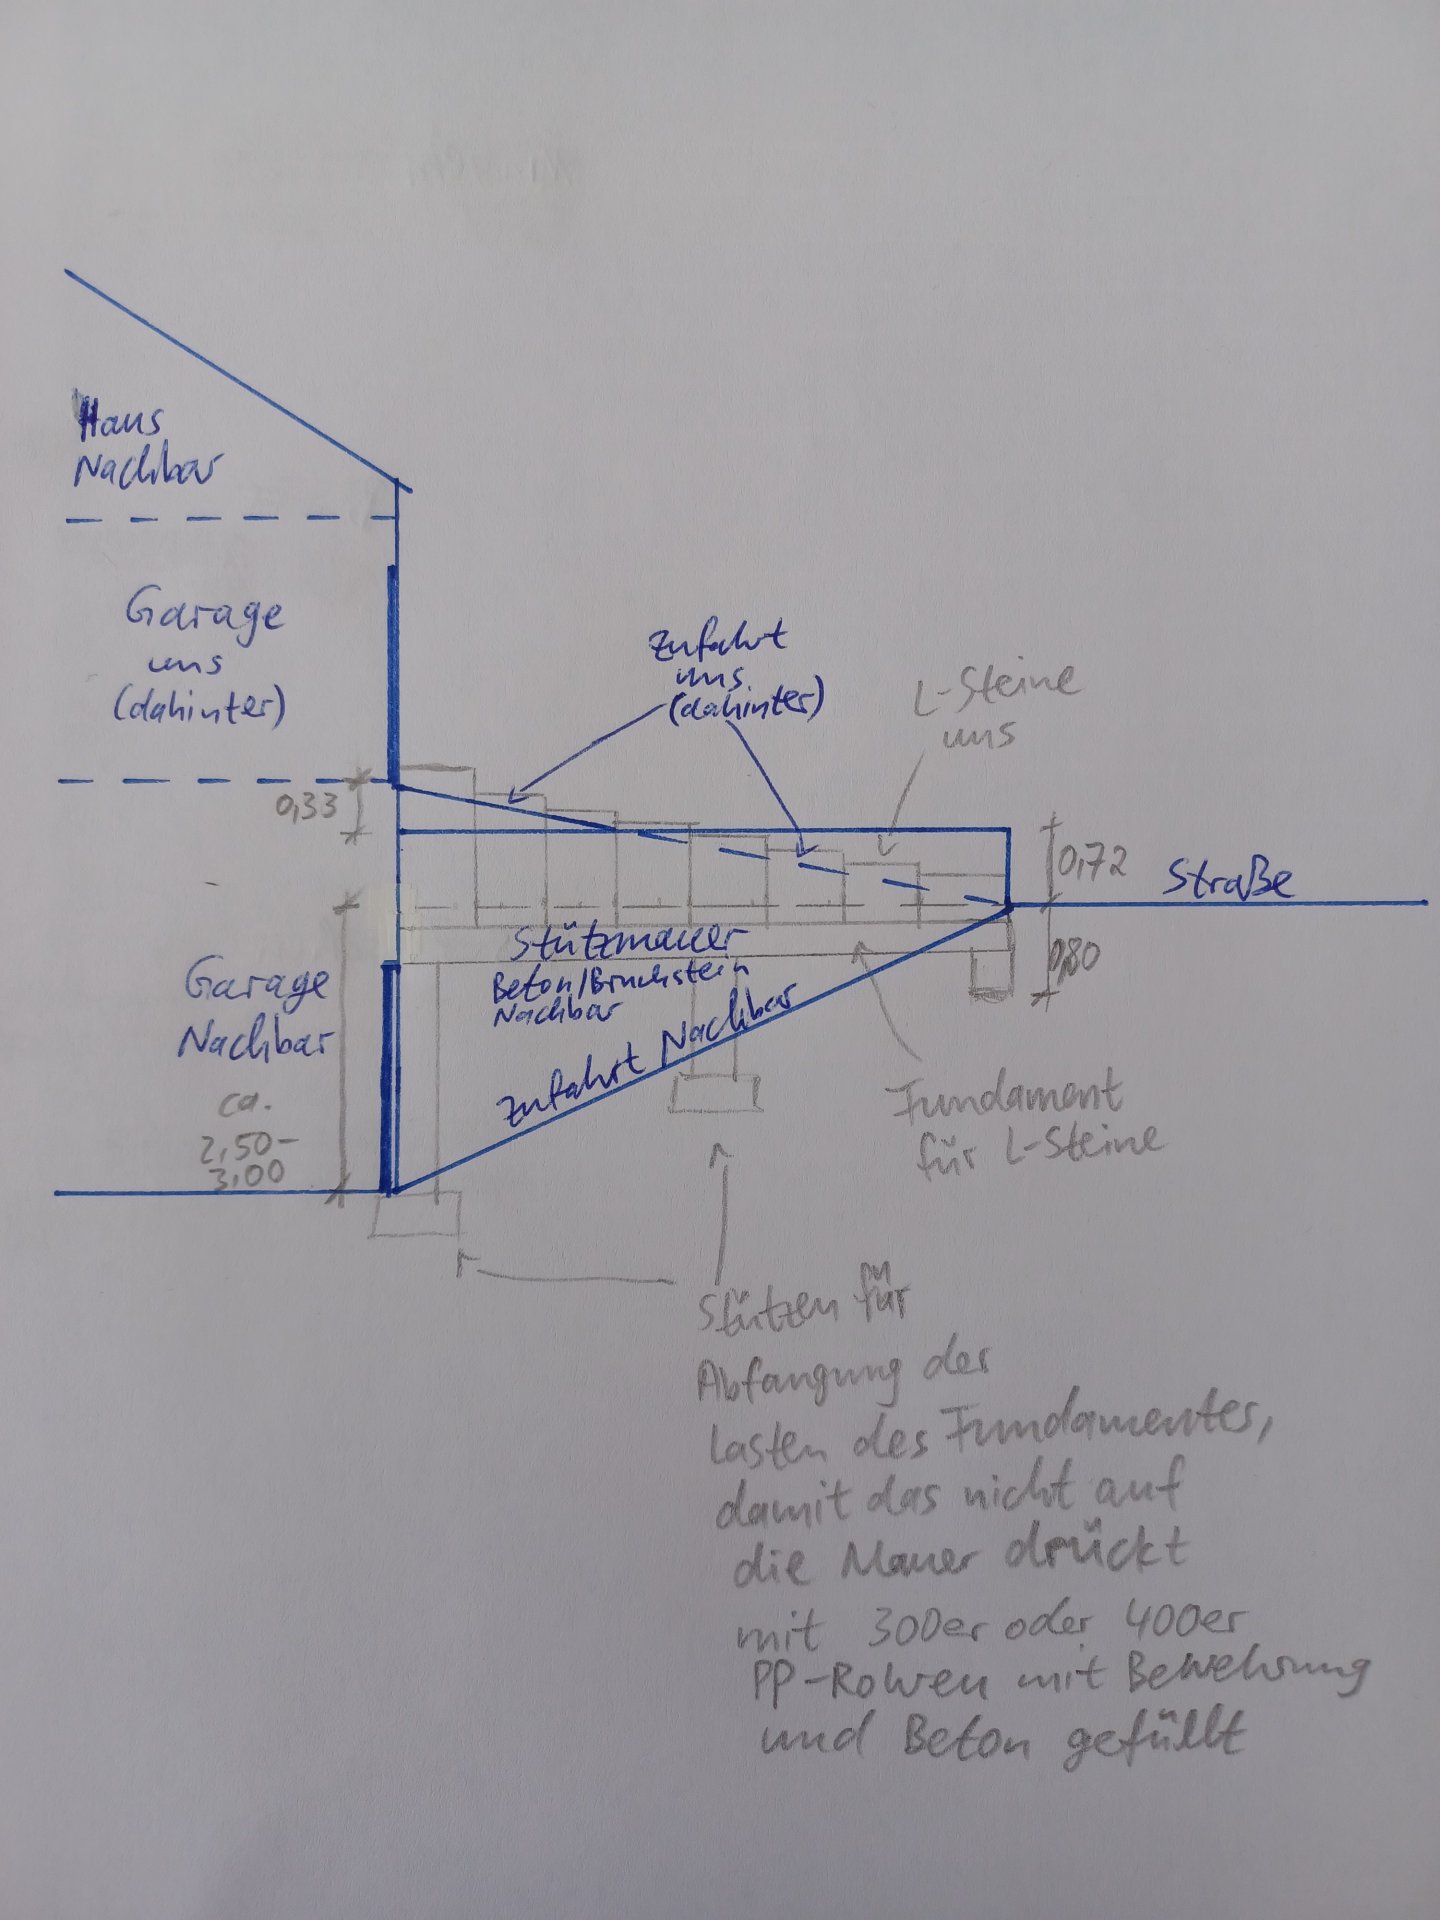 Haus
Nachbar
Garage
uns
(dahinter)
Zufahrt
uns
(dahinter)
L-Steine
uns
0,33
0,72
Straße
Stützmauer
Beton/Bruchstein
Nachbar
0,80
Garage
Nachbar
ca.
2,50-
3,00
Zufahrt Nachbar
Fundament
für L-Steine
Stützen für
Abfangung der
Lasten des Fundamentes,
damit das nicht auf
die Mauer drückt
mit 300er oder 400er
PP-Rohren mit Bewehrung
und Beton gefüllt